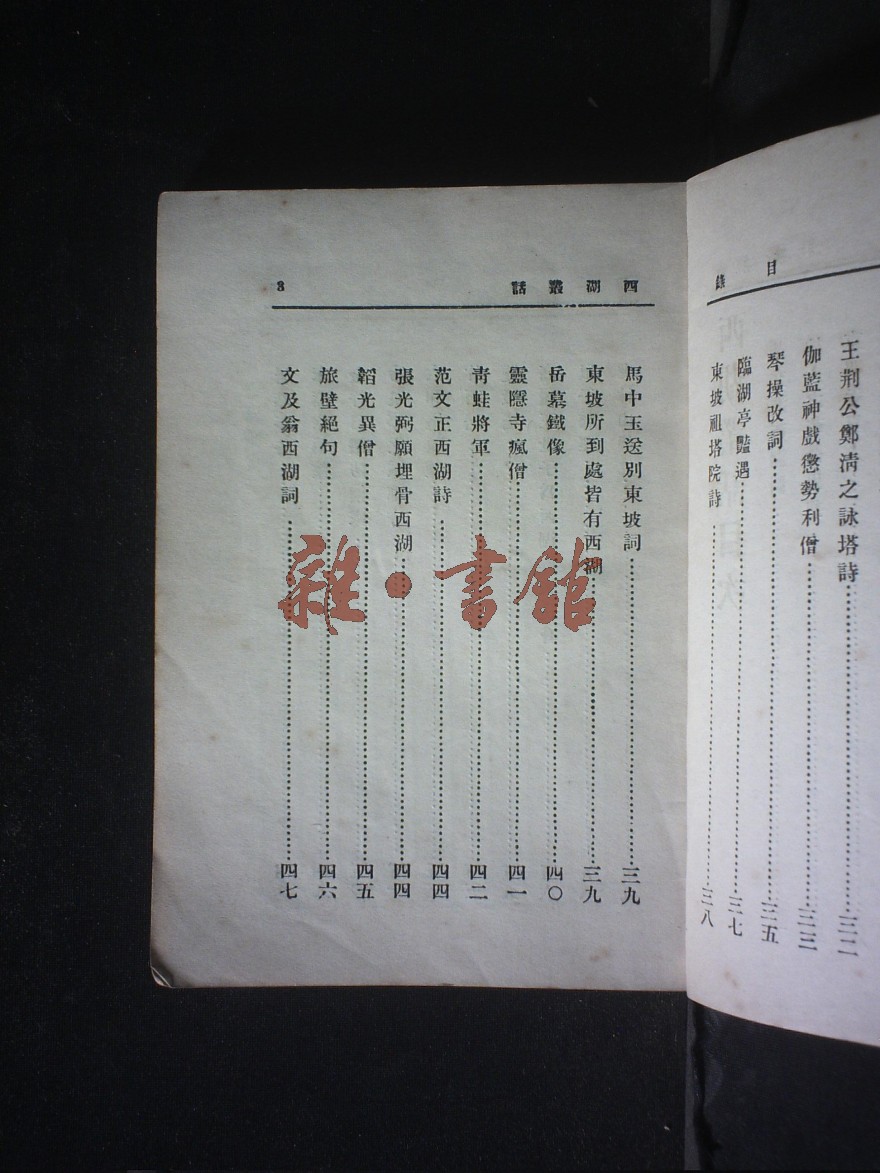 目錄
王荆公鄭淸之詠塔詩……三二
伽藍神戲懲勢利僧……三三
琴操改詞……三五
臨湖亭豔遇……三七
東坡祖塔院詩……三八
西湖叢話 8
馬中玉送別東坡詞……三九
東坡所到處皆有西湖……三九
岳墓鐵像……四〇
靈隱寺瘋僧……四一
靑蛙將軍……四二
范文正西湖詩……四四
張光弼願埋骨西湖……四四
韜光異僧……四五
旅壁絕句……四六
文及翁西湖詞……四七
雜·書館